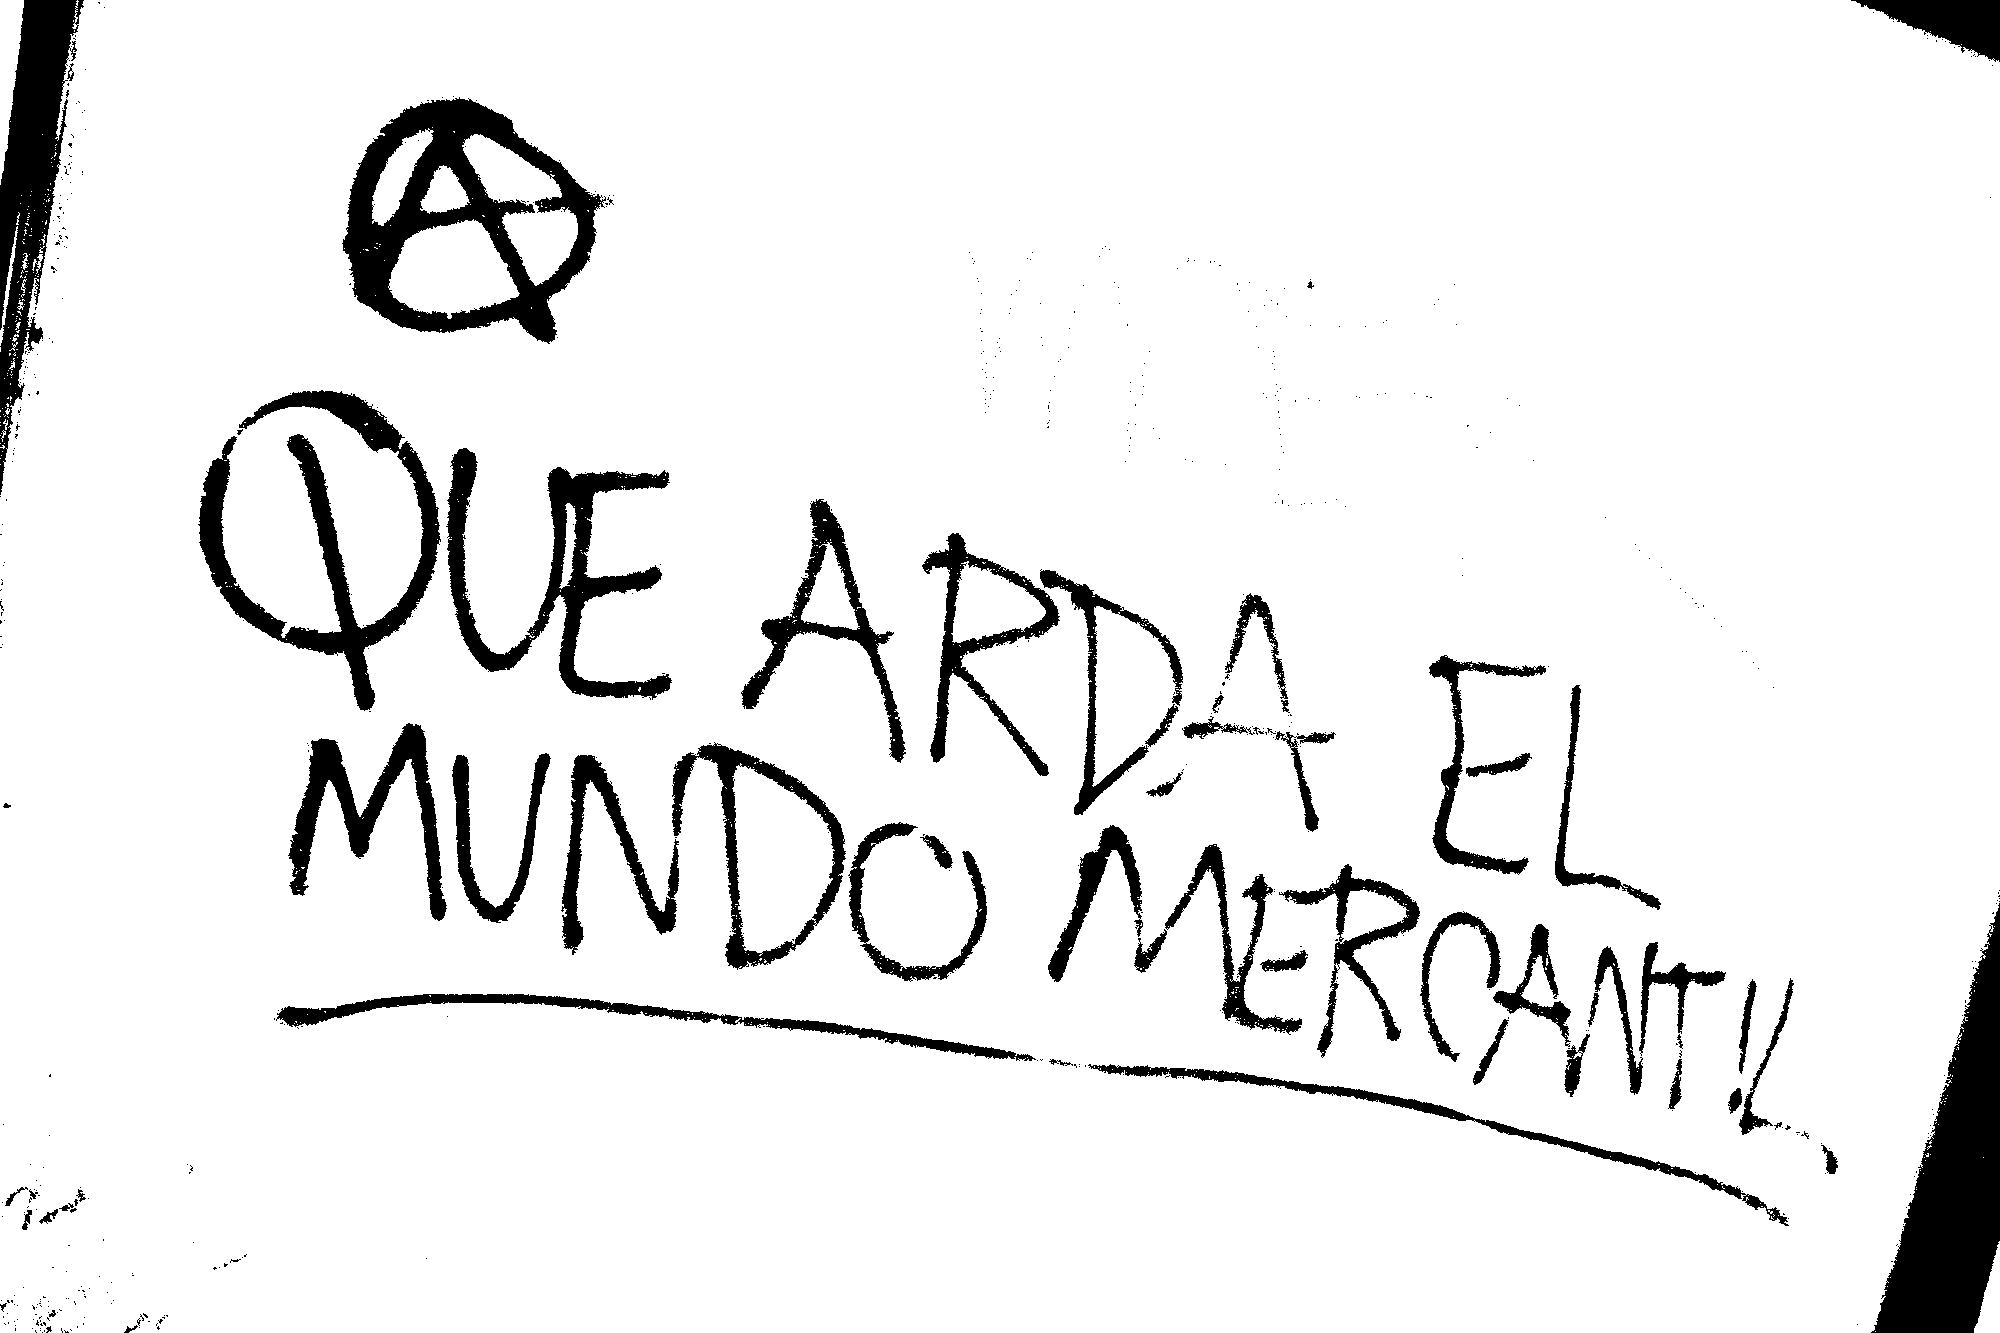 Ⓐ
QUE ARDA EL
MUNDO MERCANTIL